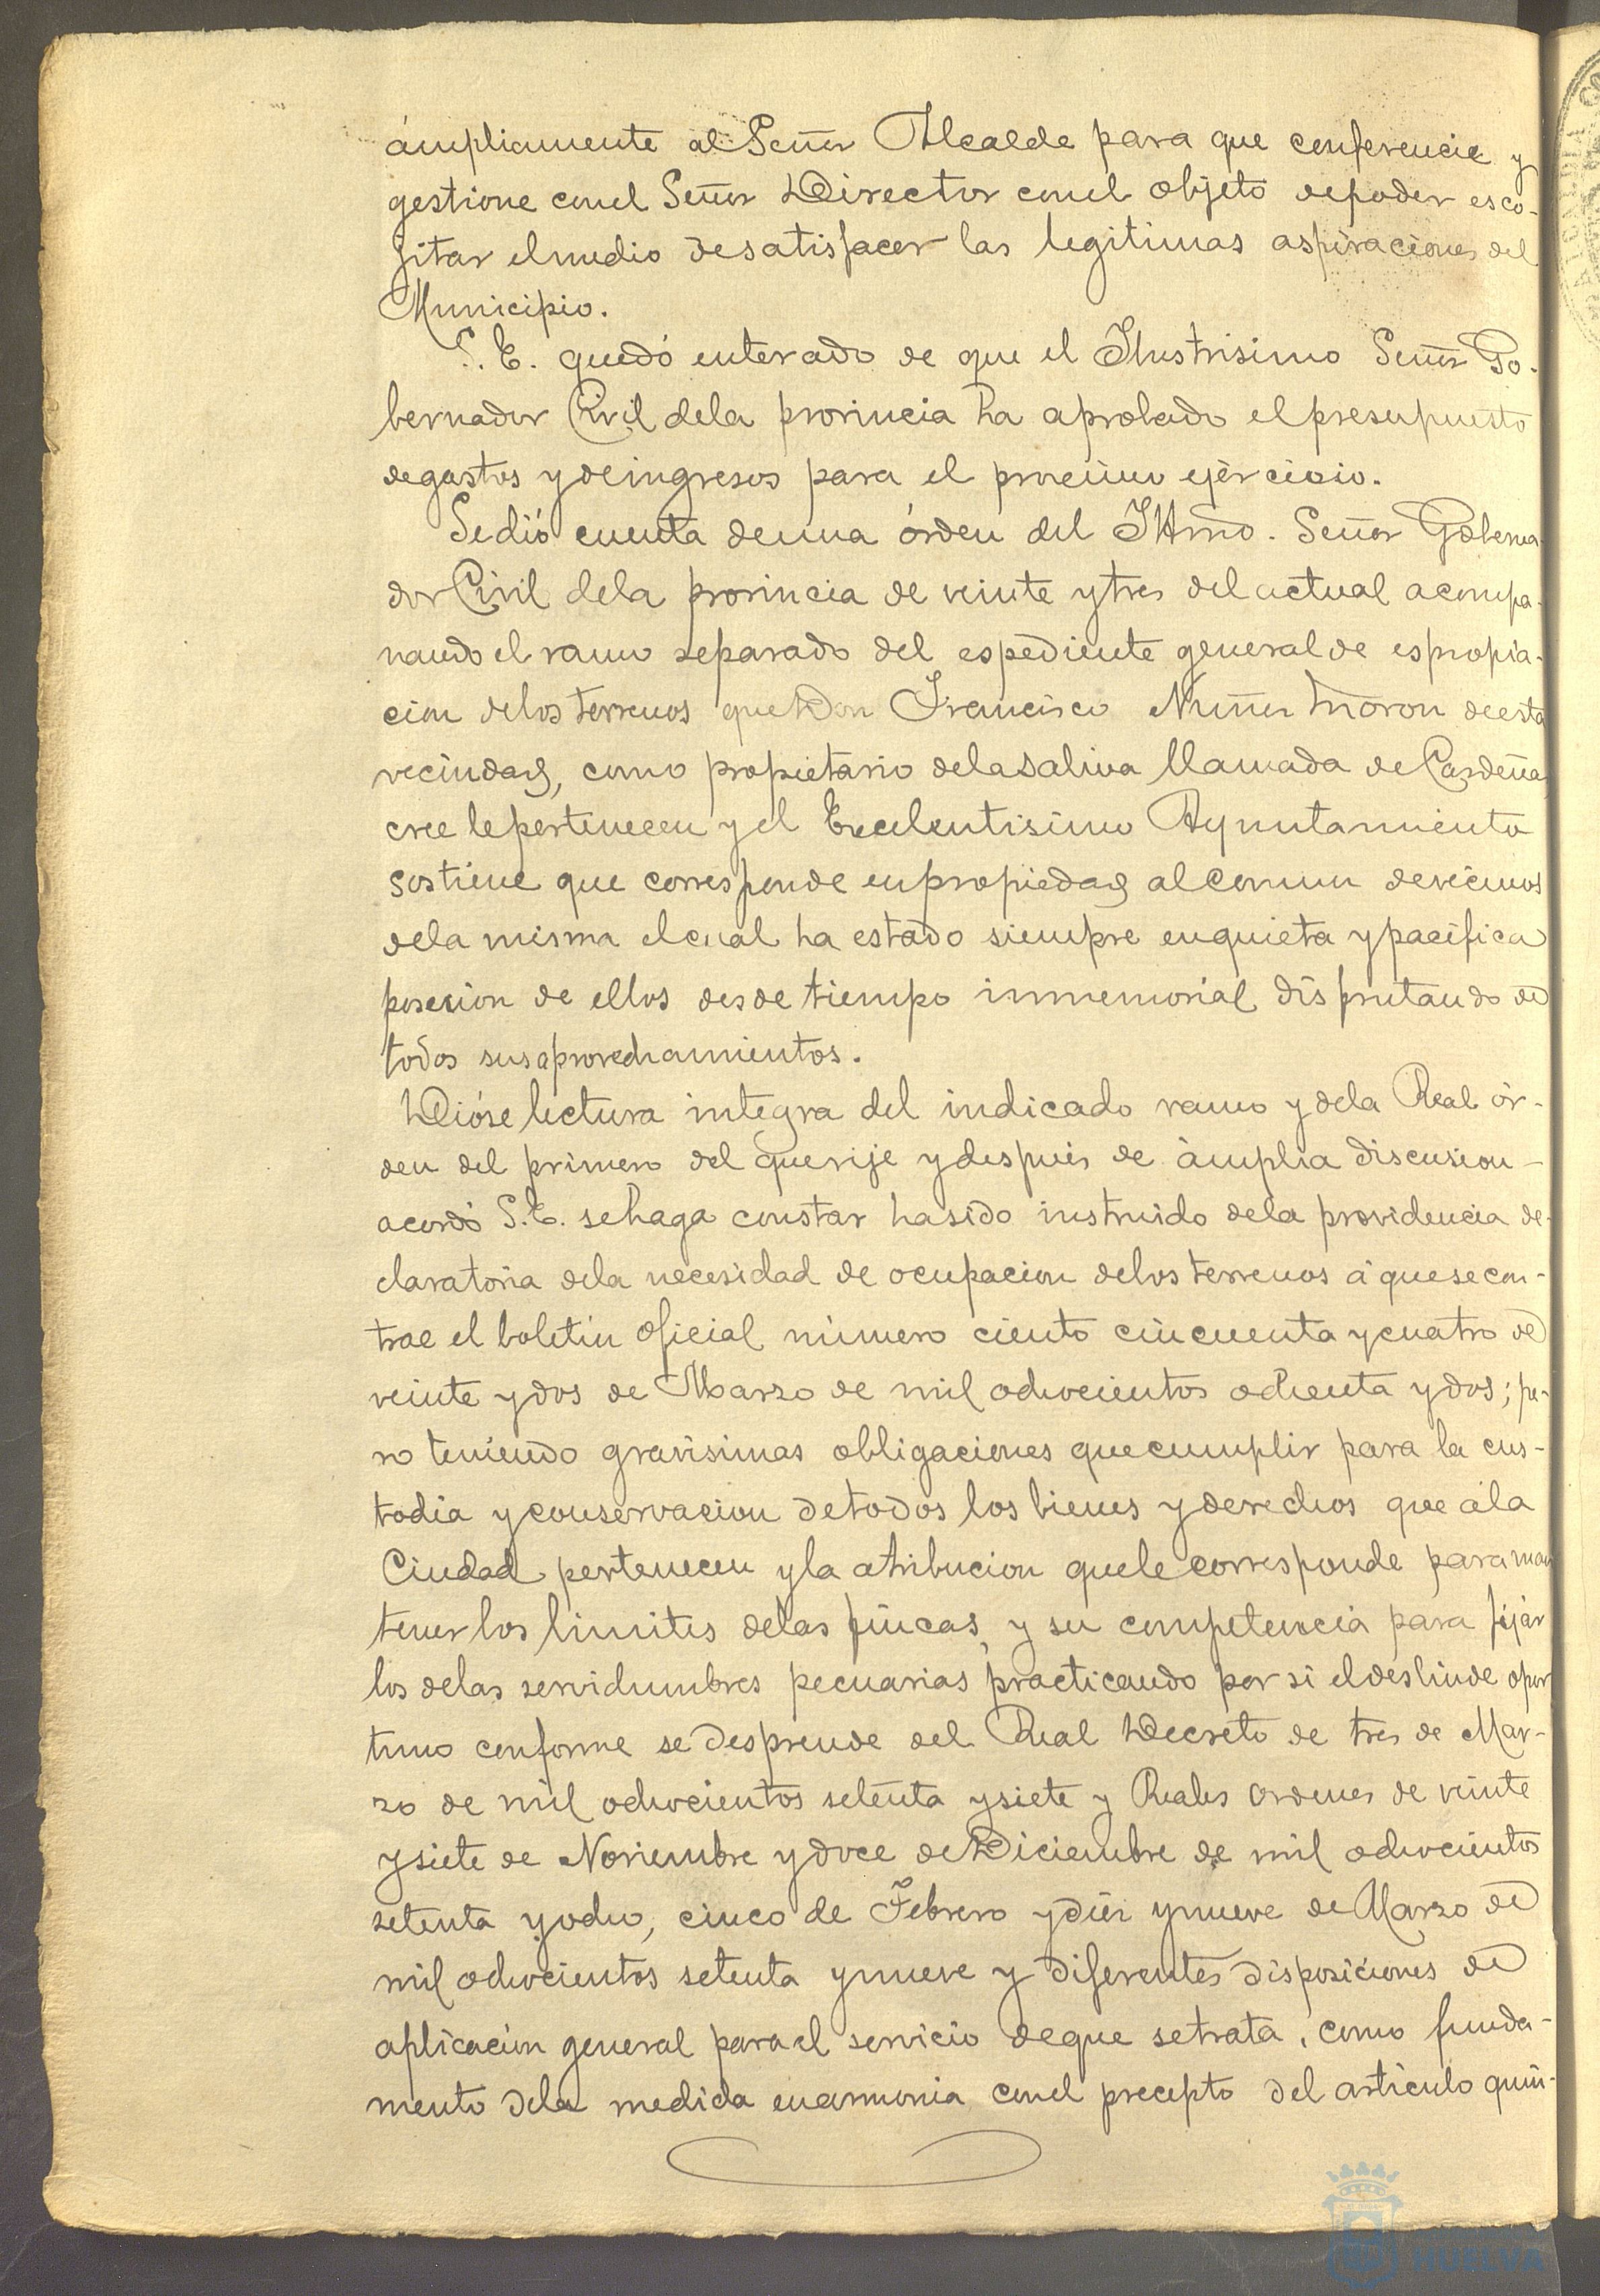 ámpliamente al Señor Alcalde para que conferencie y
gestione con el Señor Director con el objeto de poder esco-
jitar el medio de satisfacer las legitimas aspiraciones del
Municipio.
S. E. quedó enterado de que el Ilustrisimo Señor Go-
bernador Civil de la provincia ha aprobado el presupuesto
de gastos y de ingresos para el procsimo ejercicio.
Se dió cuenta de una órden del Illmo. Señor Goberna-
dor Civil de la provincia de veinte y tres del actual acompa-
ñando el ramo separado del espediente general de espropia-
cion de los terrenos que Don Francisco Nuñez Moron de esta
vecindad, como propietario de la Salina llamada de Cardeña
cree le pertenecen y el Excelentisimo Ayuntamiento
sostiene que corresponde en propiedad al comun de vecinos
de la misma el cual ha estado siempre en quieta y pacifica
posesion de ellos desde tiempo inmemorial disfrutando de
todos sus aprovechamientos.
Dióse lectura integra del indicado ramo y de la Real ór-
den del primero del que rije y despues de ámplia discusion
acordó S. E. se haga constar ha sido instruido de la providencia de-
claratoria de la necesidad de ocupacion de los terrenos á que se con-
trae el boletin oficial número ciento cincuenta y cuatro de
veinte y dos de Marzo de mil ochocientos ochenta y dos; pe-
ro teniendo gravisimas obligaciones que cumplir para la cus-
todia y conservacion de todos los bienes y derechos que á la
Ciudad pertenecen y la atribucion que le corresponde para man
tener los limites de las fincas, y su competencia para fijar
los de las servidumbres pecuarias practicando por si el deslinde opor
tuno conforme se desprende del Real Decreto de tres de Mar-
zo de mil ochocientos setenta y siete y Reales ordenes de veinte
y siete de Noviembre y doce de Diciembre de mil ochocientos
setenta y ocho, cinco de Febrero y diez y nueve de Marzo de
mil ochocientos setenta y nueve y diferentes disposiciones de
aplicacion general para el servicio de que se trata, como funda-
mento de la medida en armonia con el precepto del artículo quin-
HUELVA